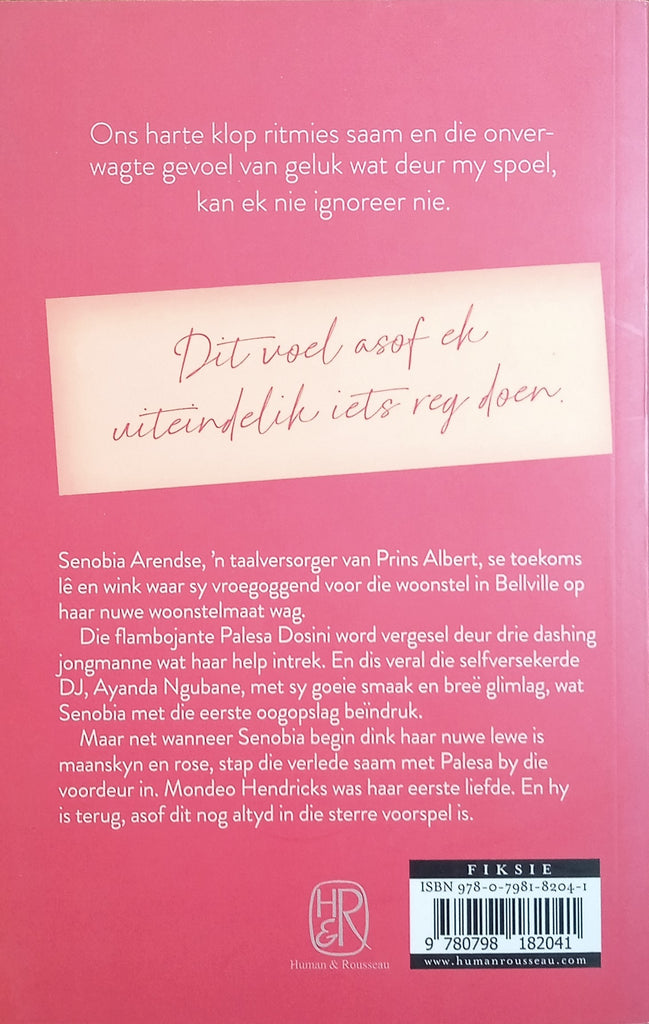 Ons harte klop ritmies saam en die onver-
wagte gevoel van geluk wat deur my spoel,
kan ek nie ignoreer nie.
Dit voel asof ek
uiteindelik iets reg doen.
Senobia Arendse, 'n taalversorger van Prins Albert, se toekoms
lê en wink waar sy vroegoggend voor die woonstel in Bellville op
haar nuwe woonstelmaat wag.
Die flambojante Palesa Dosini word vergesel deur drie dashing
jongmanne wat haar help intrek. En dis veral die selfversekerde
DJ, Ayanda Ngubane, met sy goeie smaak en breë glimlag, wat
Senobia met die eerste oogopslag beïndruk.
Maar net wanneer Senobia begin dink haar nuwe lewe is
maanskyn en rose, stap die verlede saam met Palesa by die
voordeur in. Mondeo Hendricks was haar eerste liefde. En hy
is terug, asof dit nog altyd in die sterre voorspel is.
H&R
Human & Rousseau
FIKSIE
ISBN 978-0-7981-8204-1
9 780798 182041
www.humanrousseau.com